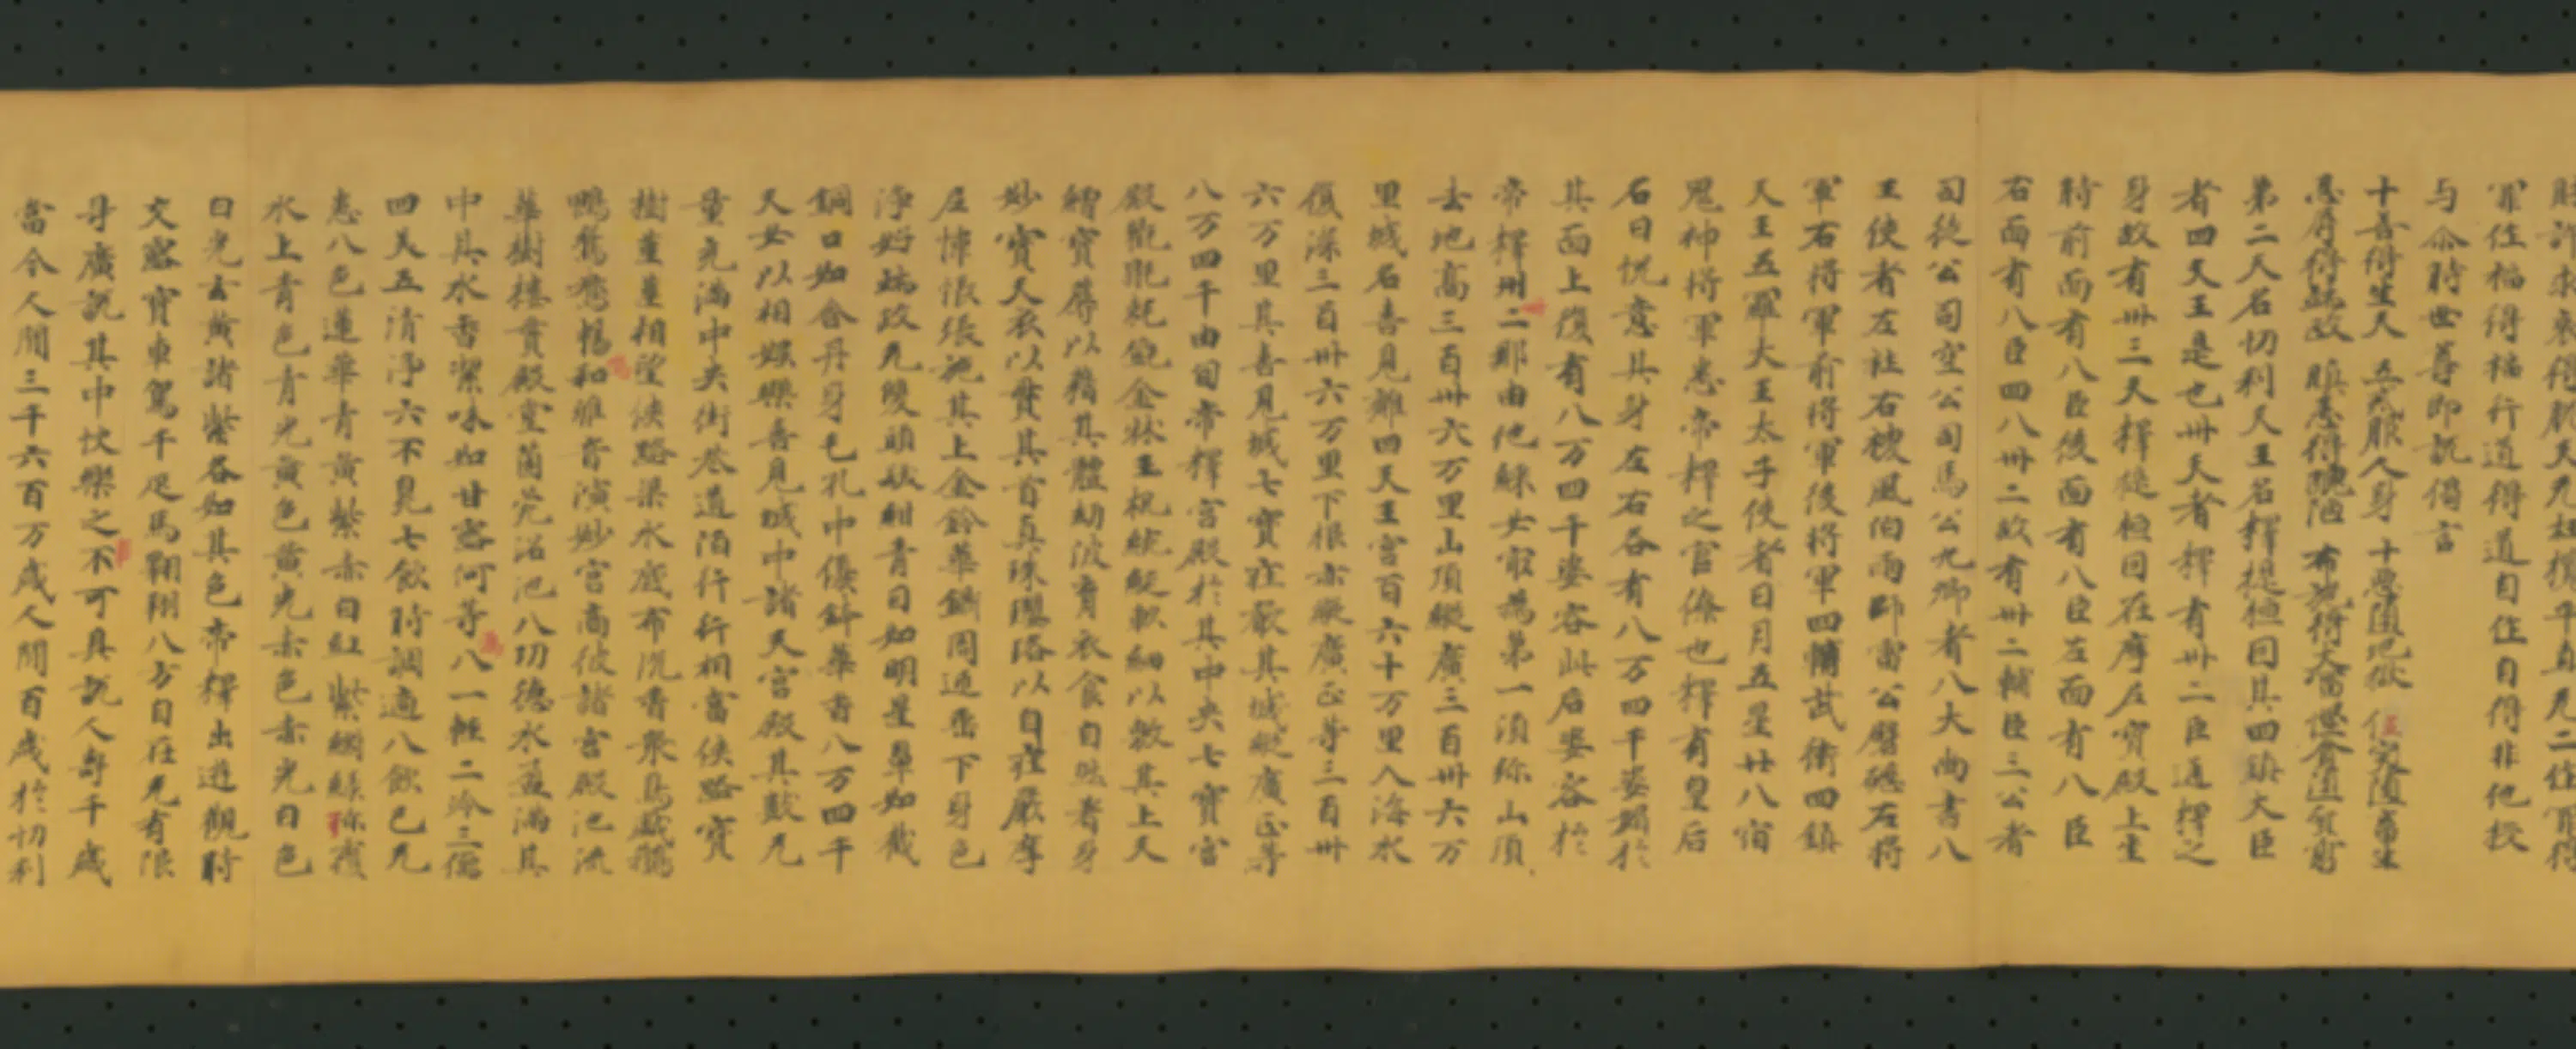 罪住福得福行道得道自住自得非他授
与尒時世尊即說偈言
十善得生天 五戒服人身 十惡墮地獄
忍辱得端政 瞋恚得醜陋 布施得大富
第二天名忉利天王名釋提桓因其四鎮大臣
者四天王是也卅天者釋有卅二臣通釋之
身故有卅三天釋提桓因在摩尼寶殿上坐
時前面有八臣後面有八臣左面有八臣
右面有八臣四八卅二故有卅二輔臣三公者
司徒公司空公司馬公九卿者八大尚書八
王使者左社右稷風伯雨師雷公礔礰左將
軍右將軍前將軍後將軍四輔武衛四鎮
天王五羅大王太子使者日月五星廿八宿
鬼神將軍悉帝釋之官僚也釋有皇后
名曰悅意其身左右各有八万四千婇
其面上復有八万四千婆容此后婆容於
帝釋州二那由他婇女冣為第一須弥山頂
去地高三百卅六万里山頂縱廣三百卅六万
里城名善見離四天王宮百六十万里入海水
復深三百卅六万里下根亦縱廣正等三百卅
六万里其善見城七寶莊嚴其城縱廣正等
八万四千由旬帝釋宮殿於其中央七寶宮
殿氍毹毾㲪金牀玉机綩綖軟細以敷其上天
繒寶蓐以藉其體劫波育衣食自然著身
妙寶天衣以賷其首真珠瓔珞以自莊嚴摩
尼愽悵張施其上金鈴華鏁周迊垂下身色
淨妙端政无雙頭髮紺青目如明星鼻如截
銅口如含丹身毛孔中優鉢華香八万四千
天女以相娛樂善見城中諸天宮殿其數无
量充滿中央街巷道陌行行相當俠路寶
樹莖莖相望俠路渠水底布沉香眾鳥
和雅音演妙宮商彼諸宮殿池流
華樹樓寶殿堂菌 浴池八功德水盈滿其
中其水香潔味如甘露何等八一輕二冷三濡
四美五清淨六不臭七飲時調適八飲已无
恚八色蓮華青黃紫赤白紅紫
水上青色青光黃色黃光赤色赤光白色
白光玄黃諸紫各如其色帝釋出遊觀時
文露寶車駕千疋馬翱翔八方自在无有限
㝵廣說其中快樂之不可具說人壽千歲
當今人間三千六百万歲人間百歲於忉利